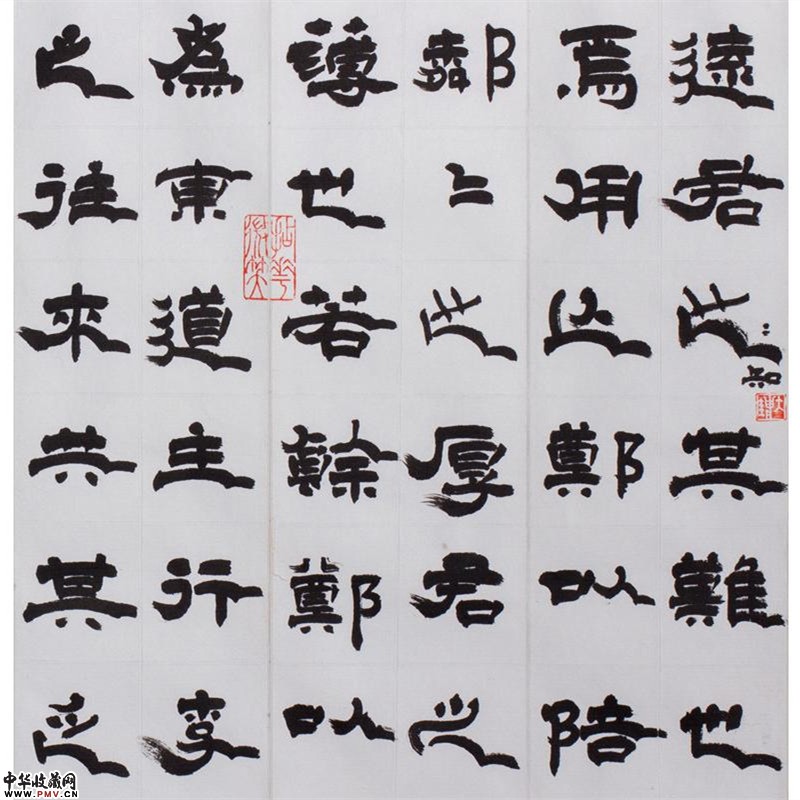 遠君之知其難也
焉用亡鄭以陪
鄰〻之厚君之
薄也若鄭以
為東道主行李
之往來共其乏
拈花微笑
中华收藏网
WWW.PMV.CN